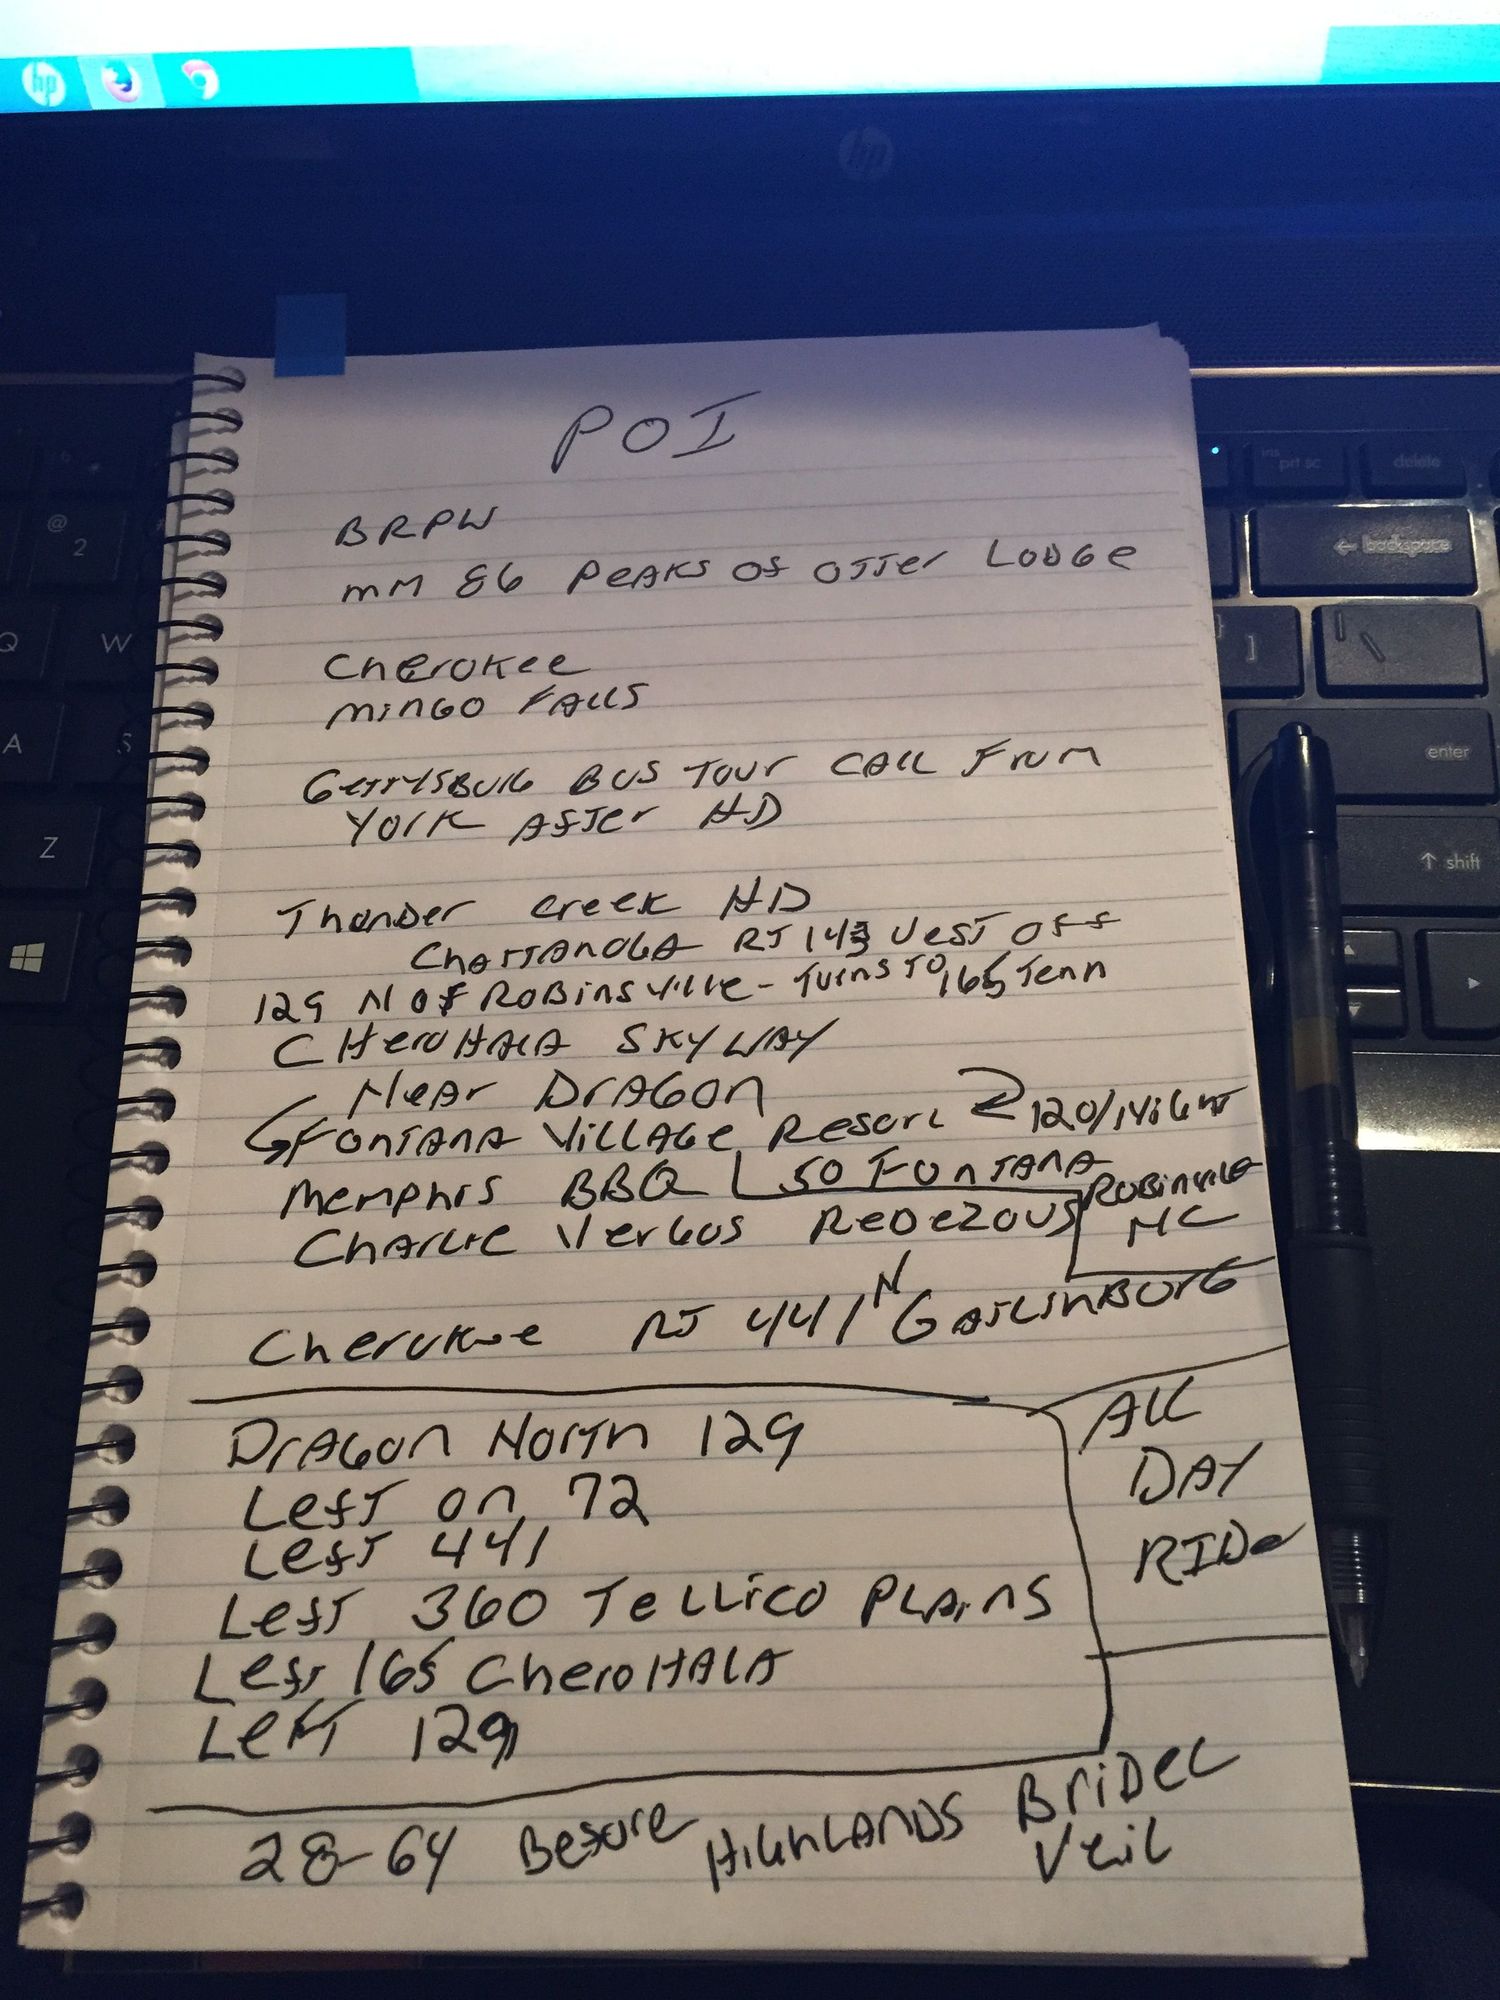 POI
BRPW
MM 86 PEAKS OF OTTER LODGE
CHEROKEE
MINGO FALLS
GETTYSBURG BUS TOUR CALL FROM
YORK AFTER HD
THUNDER CREEK HD
CHATTANOGA RT 143 WEST OFF
129 N OF ROBINSVILLE - TURNS TO 165 TENN
CHEROHALA SKYWAY
NEAR DRAGON
FONTANA VILLAGE RESORT 120/NIGHT
MEMPHIS BBQ 50 FONTANA
ROBINVILLE
NC
CHARLIE VERGOS REDEZOUS
CHEROKEE RT 441 N GATLINBURG
DRAGON NORTH 129
LEFT ON 72
LEFT 441
LEFT 360 TELLICO PLAINS
LEFT 165 CHEROHALA
LEFT 129
ALL
DAY
RIDE
28-64 BESURE HIGHLANDS BRIDEL
VEIL
hp
hp
@
2
Q
W
A
S
Z
ins
prt sc
delete
← backspace
}
]
|
\
enter
↑ shift